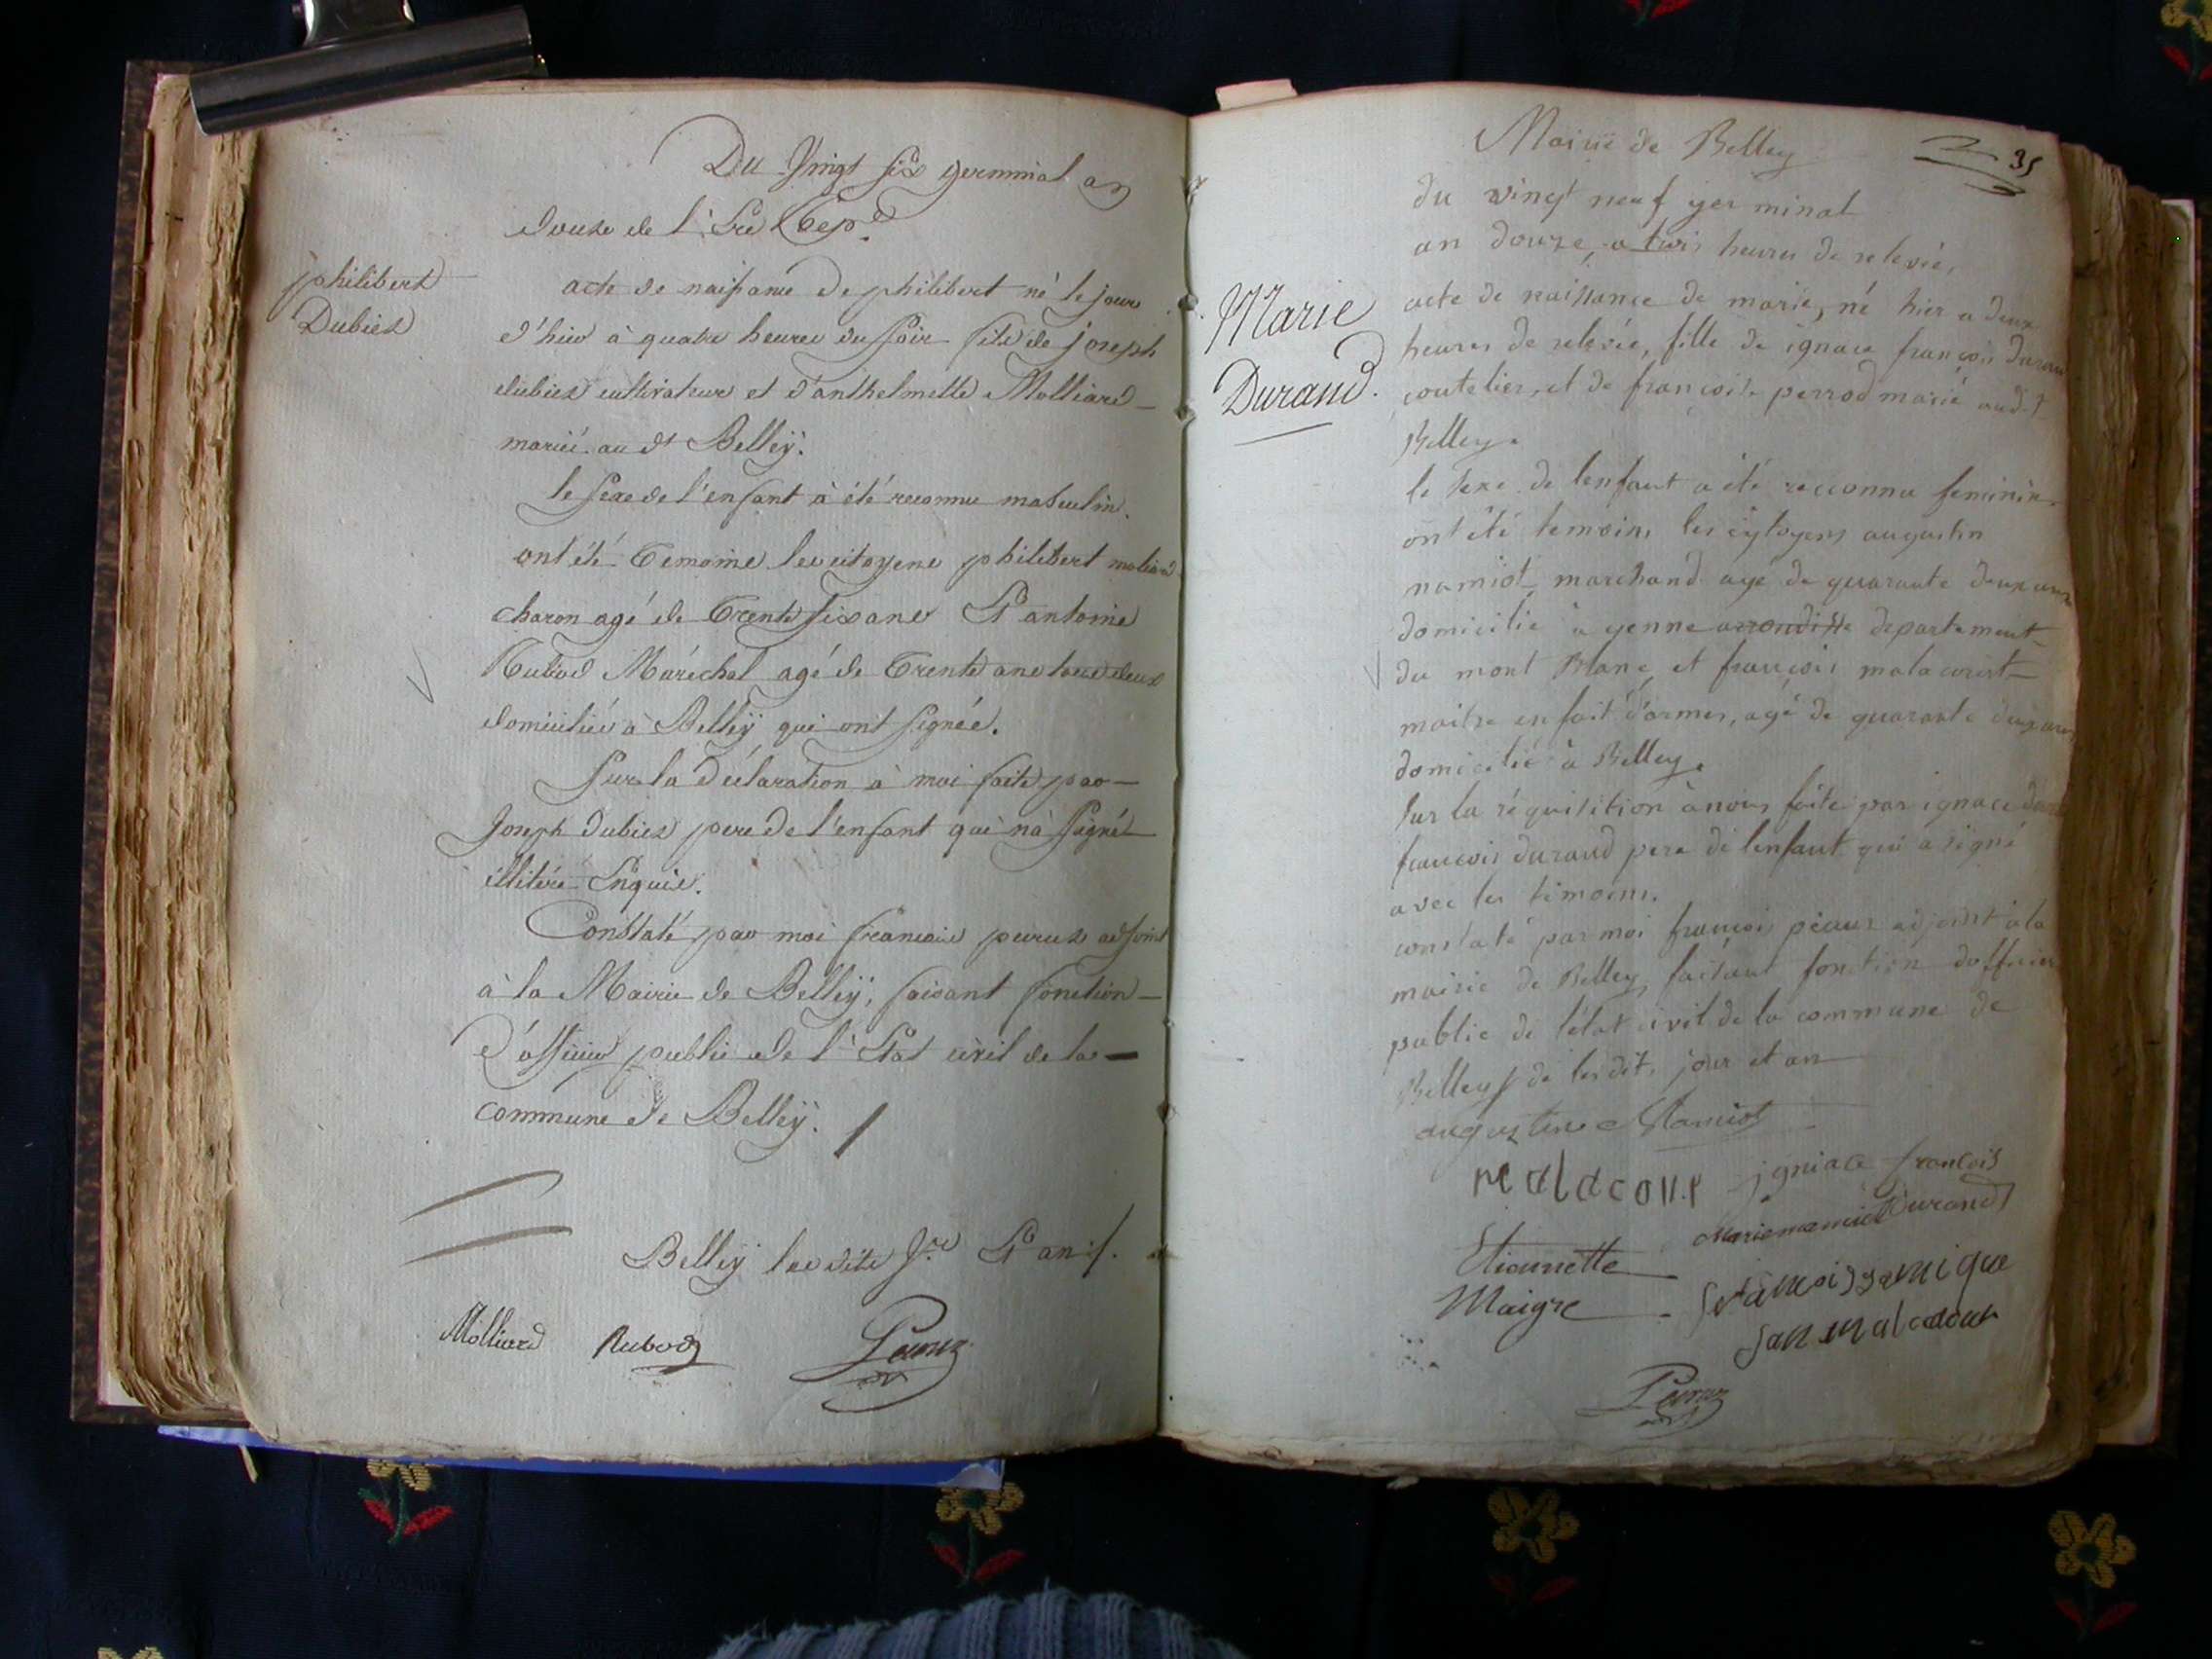 Du Vingt six germinal an
douze de l'Ere Rep.e
philibert
Dubiez
acte de naissance de philibert né le jour
d'hier à quatre heures du soir fils de joseph
dubiez cultivateur et d'anthelmette Molliard
mariés au dt Belleÿ.
le sexe de l'enfant à été reconnu masculin.
ont été Temoins les citoyens philibert moliard
charon agé de Trente six ans Et antoine
Rubod Maréchal agé de Trente ans tous deux
domiciliés à Belleÿ qui ont signés.
Sur la déclaration à moi faite par
Joseph dubiez pere de l'enfant qui n'a signé
illitéré Enquis.
Constaté par moi francois peruz adjoint
à la Mairie de Belleÿ, faisant fonction
d'officier public de l'Etat civil de la
commune de Belleÿ.
Belleÿ les dits Jrs Et an
Molliard Rubod Peruz
35
Mairie de Belley
du vingt neuf germinal
an douze, a trois heures de relevée,
Marie
Durand.
acte de naissance de marie, né hier a deux
heures de relevée, fille de ignace françois durand
coutelier, et de françoise perrod marié aud.t
Belley.
le sexe de lenfant a été reconnu feminin.
ont été temoins les cytoyens augustin
namiot marchand agé de quarante deux ans
domicilié à yenne arrondisse departement
du mont Blanc et françois malacourt
maitre en fait d'armes, agé de quarante deux ans
domicilié à Belley.
sur la réquisition à nous faite par ignace
francois durand pere de lenfant qui a signé
avec les temoins.
constaté par moi françois péruz adjoint à la
mairie de Belley faisant fonction dofficier
public de létat civil de la commune de
Belley de lesdits jour et an
augustin Namiot
malacour jgniace francois
Marie namiot Durand
Etiennette
Maigre
Peruz